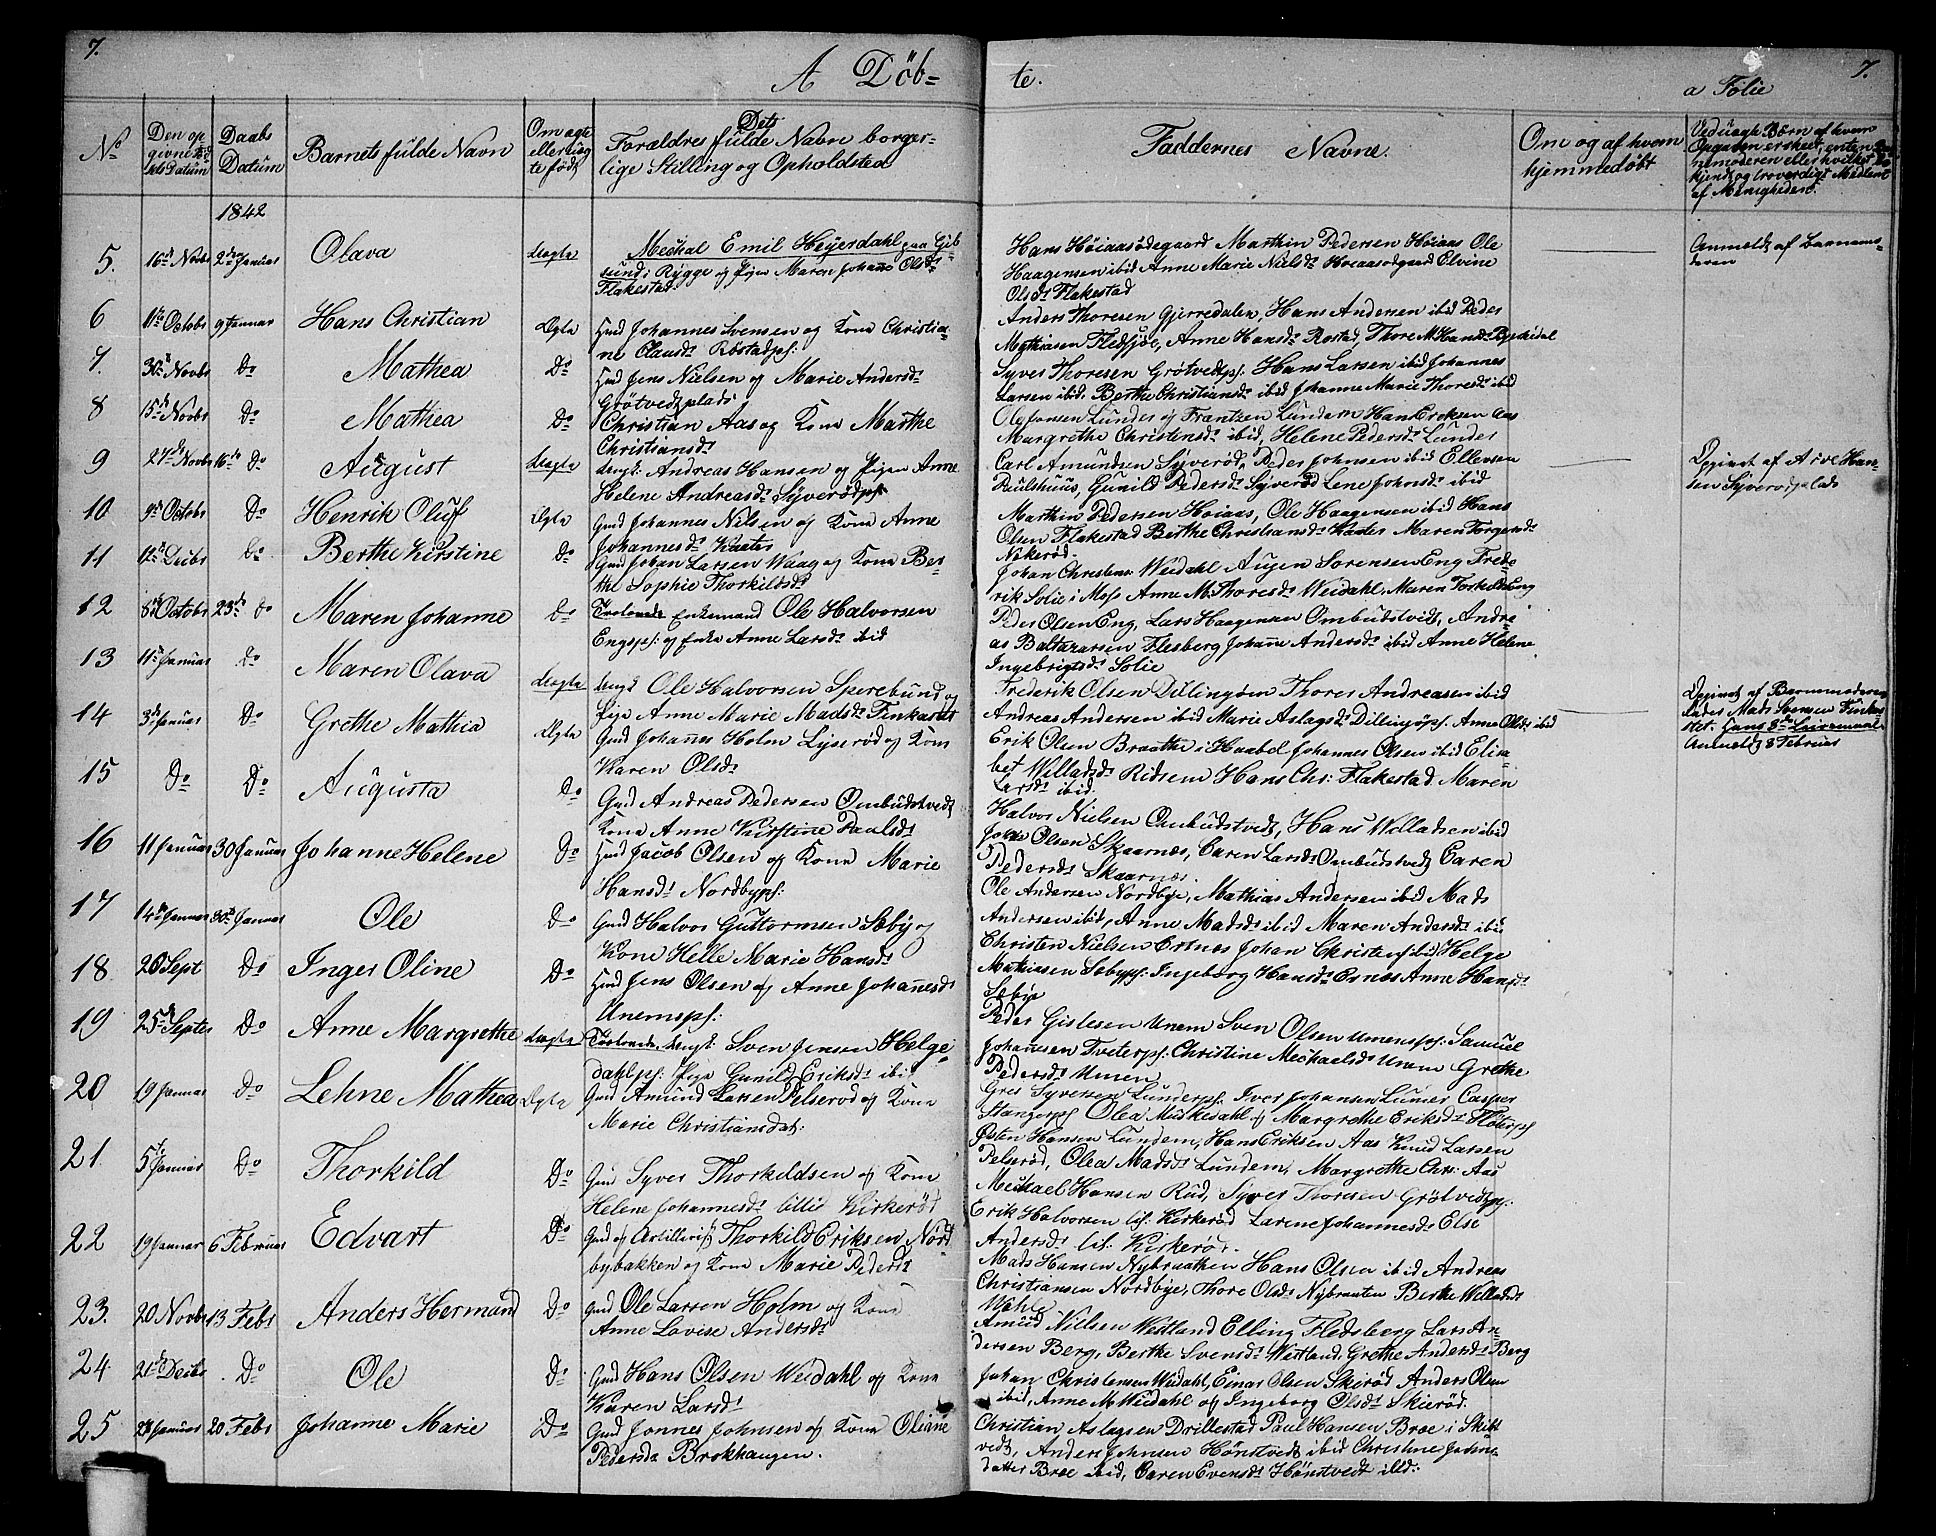 7.
A Døb=
te.
7.
a Folie
No
Den op
givne Fød
sels Datum
Daabs
Datum
Barnets fulde Navn
Om ægte
eller uæg
te født
Dets
Forældres fulde Navn borger-
lige Stilling og Opholdsted
Faddernes Navne.
Om og af hvem
hjemmedøbt
Ved uægte Børn af hvem
Opgaven er skeet, enten
af Menigheden.
1842
5. 16de Novbr 2den Januar Olava Uægte
Mechal Emil Heyerdahl paa Gib
sund i Rygge og Pigen Maren Johanne Olsdr
Flakestad
Hans Höiaasödegaard Marthin Pedersen Höiaas Ole
Haagensen ibid Anne Marie Nielsdr Hoiaasodgaard Elvine
Olsdr Flakestad
Anmeldt af Barnemo-
deren
6 11te Octobr 9 Januar Hans Christian Ægte
Hmd Johannes Svensen og Kone Christia-
ne Clausdr Röstadpl:
Anders Thoresen Gjerredalen, Hans Andersen ibid Peder
Mathiasen Fledsjöe, Anne Hansdr Rostad, Thore M Hansdr
7. 30te Novbr Do Mathea Do
Hmd Jens Nielsen og Marie Andersdr
Grötvedtplads
Syver Thoresen Grötvedtpl: Hans Larsen ibid Johannes
Larsen ibid. Berthe Christiansdr ibid Johanne Marie Thoresdr ibid
8 15de Novbr Do Mathea Do
Christian Aas og Kone Marthe
Christiansdr
Ole Jonsen Lunder og Frantzen Lundem Hans Eriksen Aas
Margrethe Christensdr ibid, Helene Pedersdr Lunder
9 27de Novbr 16de Do August Uægte
Ungk: Andreas Hansen og Pigen Anne
Helene Andreasdr Syverödpl
Carl Amundsen Syveröd, Peder Johnsen ibid Ellensen
Paulshuus, Gunild Pedersdr Syveröd Lene Johnsdr ibid
Opgivet af Arve Han-
sen Syverodplads
10 9de Octobr Do Henrik Oluf Ægte
Gmd Johannes Nilsen og Kone Anne
Johannesdr Kaater
Marthin Pedersen Hoiaas, Ole Haagensen ibid Hans
Olsen Flakestad Berthe Christiansdr Kaater Maren Torgersdr
Nokeröd.
11 12te Decbr Do Berthe Kirstine Do
Gmd Johan Larsen Waag og Kone Ber-
the Sophie Thorkildsdr
Johan Christens: Weidahl Augen Sorensen Eng Frede-
rik Solie i Moss Anne M. Thoresdr Weidahl, Maren Torkelsdr Eng
12 8de Octobr 23de Do Maren Johanne Do
Trolovede Enkemand Ole Halvorsen
Engspl: og Enke Anne Larsdr ibid
Peder Olsen Eng, Lars Haagensen Ombudstvedt, Andre-
as Baltzarsen Flesberg Johanne Andersdr ibid Anne Helene
Ingebrigtsdr Solie
13 11te Januar Do Maren Olava Uægte
Ungk Ole Halvorsen Sperebund og
Pige Anne Marie Madsdr Finkastet
Frederik Olsen Dillingöen Thores Andreasen ibid
Andreas Andersen ibid Marie Aslagsdr Dillingöpl. Anne Olsdr ibid
Opgivet af Barnemoderens
Fader Mads Svensen Finkas
tet. hans 8de Leiermaal.
Anmeldt 8 Februar
14 3de Januar Do Grethe Mathia Ægte
Gmd Johannes Holm Lyseröd og Kone
Karen Olsdr
Erik Olsen Braathe i Haabøl Johannes Olsen ibid Elisa-
bet Willadsdr Ridsem Hans Chr: Flakestad Maren
Larsdr ibid.
15 Do Do Augusta Do
Gmd Andreas Pedersen Ombudstvedt
Kone Anne Kirstine Paulsdr
Halvor Nielsen Ombudstvedt, Hans Willadsen ibid
John Olsen Skaarnæs, Caren Larsdr Ombudstvedt Caren
Pedersdr Skaarnæs
16 11 Januar 30 Januar Johanne Helene Do
Hmd Jacob Olsen og Kone Marie
Hansdr Nordbypl:
Ole Andersen Nordbye, Mathias Andersen ibid Mads
Andersen ibid, Anne Madsdr ibid Maren Andersdr ibid
17 14de Januar 30te Januar Ole Do
Gmd Halvor Guttormsen Sæby og
Kone Helle Marie Hansdr
Christen Nielsen Ertnes Johan Christens: ibid Helge
Mathisen Sæbypl: Ingeborg Hansdr Esnæs Anne Hansdr
Sæbye
18 26 Sept Do Inger Oline Do
Hmd Jens Olsen og Anne Johannesdr
Unemspl:
Peder Gislesen Unem Sven Olsen Unemspl: Samuel
Johannesen Tveterpl: Christine Mechaelsdr Unem Grethe
Pedersdr Unem
19 25de Septer Do Anne Margrethe Uægte
Trolovede, Ungk: Sven Jensen Helge-
dahlpl: Pige Gunild Eriksdr ibid
Gres Syversen Lunderpl: Iver Johansen Lunder Casper
Stangerpl Olea Muskedahl og Margrethe Eriksdr Flöterpl
20 19 Januar Do Lehne Mathea Ægte
Gmd Amund Larsen Pelseröd og Kone
Marie Christiansdat:
Østen Hansen Lundem, Hans Eriksen Aas Knud Larsen
Pelseröd, Olea Madsdr Lundem, Margrethe Chr: Aas
21. 5te Januar Do Thorkild Do
Gmd Syver Thorkildsen og Kone
Helene Johannesdr lille Kirkeröd
Mechael Hansen Rud, Syver Thoresen Grötvedtpl:
Erik Halvorsen lil: Kirkeröd Larine Johannesdr Else
Andersdr lil: Kirkeröd.
22 19 Januar 6 Februar Edvart Do
Gmd og Artillerist Thorkild Eriksen Nord
bybakken og Kone Marie Pedersdr
Mads Hansen Nybraathen Hans Olsen ibid Andreas
Christiansen Nordbye, Thore Olsdr Nybraaten Berthe Willadsdr
23. 20 Novbr 13 Febr Anders Hermand Do
Gmd Ole Larsen Holm og Kone
Anne Lovise Andersdr
Amund Nielsen Westland Elling Fledsberg Lars An-
dersen Berg, Berthe Svensdr Westland, Grethe Andersdr Berg
24 21de Decbr Do Ole Do
Gmd Hans Olsen Weidahl og Kone
Karen Larsdr
Johan Christensen Weidahl, Einar Olsen Skiröd Anders Olsen
ibid, Anne M. Weidahl og Ingeborg Olsdr Skieröd.
25 Januar 20 Febr Johanne Marie Do
Gmd Jonnes Johnsen og Kone Oliane
Pedersdr Brokhaugen.
Christian Aslagsen Drillestad Paul Hansen Broe i Skibt
vedt, Anders Johnsen Hönstvedt ibid Christine
datter Broe ibid, Caren Evensdr Hönstvedt ibid.